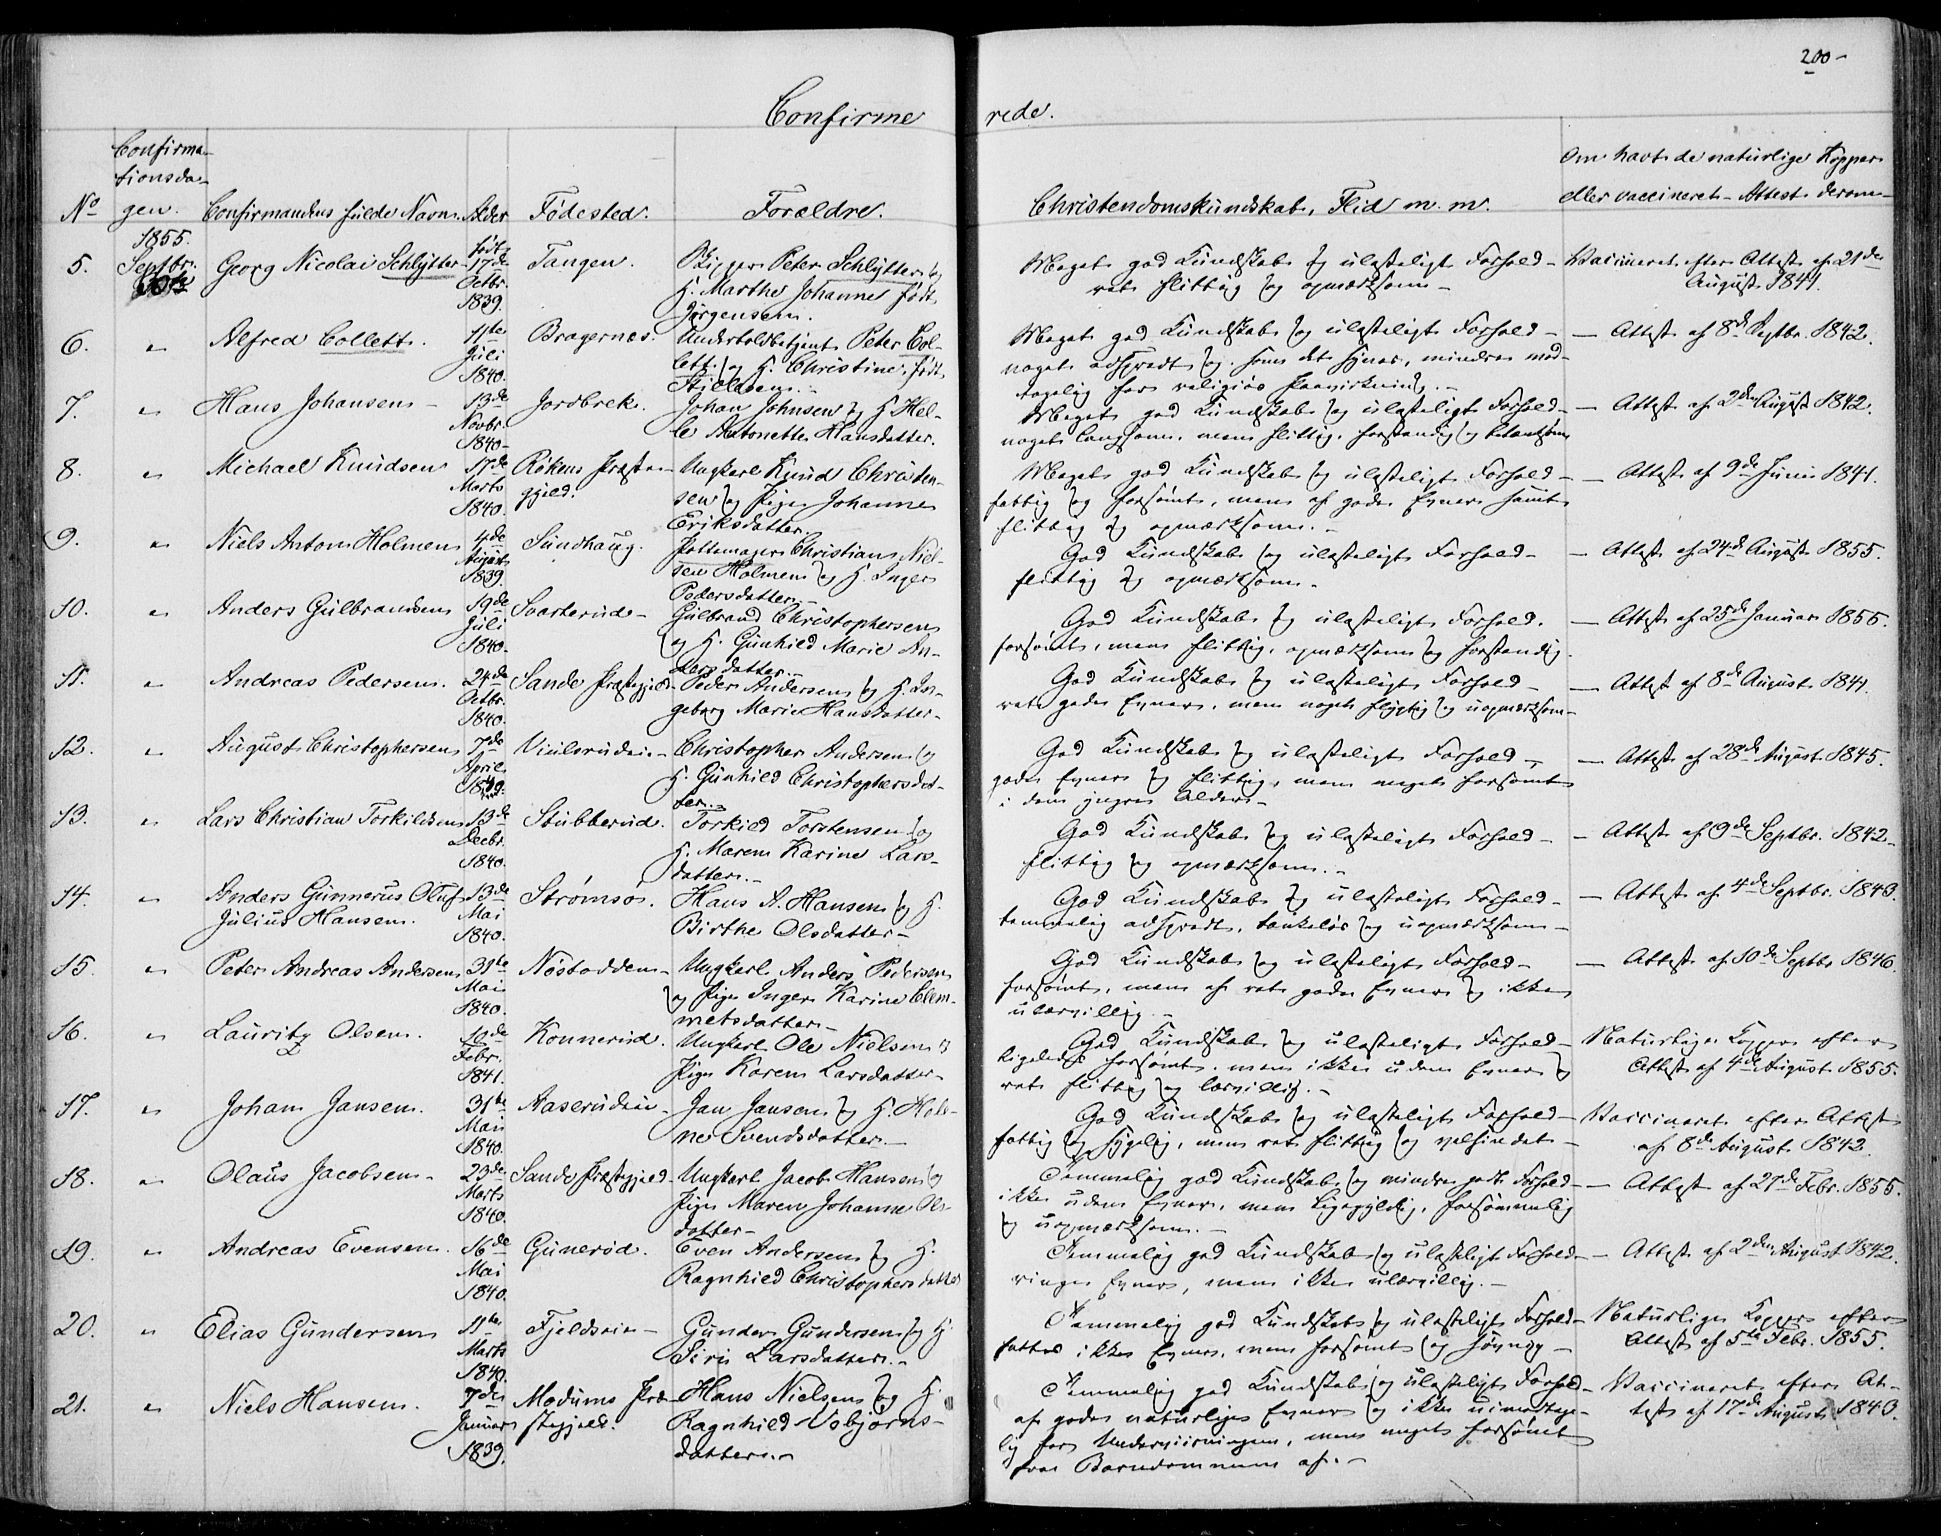 200-
Confirmerede.
No
Confirmationsdagen.
Confirmandens fulde Navn.
Alder
Fødested.
Forældre.
Christendomskundskab, Flid m. m.
Om havt de naturlige Kopper
eller vaccineret - Attest derom-
1855.
Septbr.
5. Georg Nicolai Schlytter født 17de Octbr. 1839. Tangen.
Peter Schlytter og
H. Marthe Johanne født
Jørgensen.
Meget god Kundskab og ulasteligt Forhold -
ret flittig og opmærksom -
Vaccineret efter Attest af 21de
August 1841.
6. " Alfred Collett. 11te Juli 1840. Bragernes.
Underfoldbetjent Peter Col-
lett og H. Christine født
Meget god Kundskab og ulasteligt Forhold -
noget adspredt og, som det synes, mindre mod-
tagelig for religiøs Paavirkning. -
- Attest af 8de Septbr. 1842.
7. " Hans Johansen - 13de Novbr. 1840- Jordbrek.
Johan Johnsen og H. Hel-
le Antonette Hansdatter.
Meget god Kundskab og ulasteligt Forhold -
noget langsom, men flittig, forstandig og betænksom
- Attest af 2den August 1842.
8. " Michael Knudsen 17de Marts 1840. Røkens Præste-
gjeld.
Ungkarl Knud Christen-
sen og Pige Johanne
Eriksdatter
Meget god Kundskab og ulasteligt Forhold -
fattig og forsømt, men af gode Evner samt
flittig og opmærksom. -
- Attest af 9de Juni 1841.
9. " Niels Anton Holmen 4de August 1839. Sundhaug.
Pottemager Christian Niel-
sen Holmen og H. Inger
Pedersdatter. -
God Kundskab og ulasteligt Forhold -
flittig og opmærksom -
- Attest af 24de August 1855.
10. " Anders Gulbrandsen 19de Juli 1840. Svarterud -
Gulbrand Christophersen
og H. Gunhild Marie An-
dersdatter. -
God Kundskab og ulasteligt Forhold.
forsømt, men flittig, opmærksom og forstandig.
- Attest af 25de Januar 1855.
11. " Andreas Pedersen. 24de Octbr. 1840. Sande Præstegjeld -
Peder Andersen og H. In-
geborg Marie Hansdatter -
God Kundskab og ulasteligt Forhold -
ret gode Evner, men noget flygtig og uopmærksom -
- Attest af 8de August 1841.
12. " August Christophersen 7de April
Christopher Andersen og
H. Gunhild Christophersdat-
ter. -
God Kundskab og ulasteligt Forhold -
gode Evner og flittig, men noget forsømt
i den yngre Alder -
- Attest af 28de August 1845.
13. " Lars Christian Torkildsen 13de Decbr. 1840. Stubberud.
Torkild Torstensen og
H. Maren Karine Lars-
datter. -
God Kundskab og ulasteligt Forhold -
flittig og opmærksom. -
- Attest af 9de Septbr. 1842 -
14. " Anders Gunnerus Oluf
Julius Hansen. 13de Mai 1840. Strømsø.
Hans A. Hansen og H.
Birthe Olsdatter -
God Kundskab og ulasteligt Forhold -
temmelig adspredt, tankeløs og uopmærksom -
- Attest af 4de Septbr. 1843.
15. " Peter Andreas Andersen 31te Mai 1840. Nøstodden -
Ungkarl Anders Pedersen
og Pige Inger Karine Clem-
metsdatter -
God Kundskab og ulasteligt Forhold -
forsømt, men af ret gode Evner og ikke
ulærvillig. -
- Attest af 10de Septbr 1846.
16. " Lauritz Olsen. Febr. 1841. Konnerud.
Ungkarl Ole Nielsen og
Pige Karen Larsdatter -
God Kundskab og ulasteligt Forhold -
ligeledes forsømt, men ikke uden Evner og
ret flittig og lærvillig. -
Naturlige Kopper efter
Attest af 4de August 1855.
17. " Johan Jansen. 31te Mai 1840. Aaserudeie -
Jan Jansen og H. Hele-
ne Svendsdatter. -
God Kundskab og ulasteligt Forhold -
fattig og sygelig, men ret flittig og velsindet -
Vaccineret efter Attest
af 8de August 1842.
18. " Olaus Jacobsen - 23de Marts 1840. Sande Præstegjeld -
Ungkarl Jacob Hansen og
Pige Maren Johanne Ols-
datter -
Temmelig god Kundskab og mindre godt Forhold -
ikke uden Evner, men ligegyldig, forsømmelig
og uopmærksom. -
- Attest af 27de Febr. 1855.
19. " Andreas Evensen. 16de Mai 1840. Gunerød.
Even Andersen og H.
Ragnhild Christophersdatter
Temmelig god Kundskab og ulasteligt Forhold -
ringe Evner, men ikke ulærvillig. -
- Attest af 2den August 1842.
20. " Elias Gundersen 11te Marts 1840. Fjeldseie -
Gunder Gundersen og H.
Siri Larsdatter. -
Temmelig god Kundskab og ulasteligt Forhold -
fattes ikke Evner, men forsømt og
Naturlige Kopper efter
Attest af 5te Febr. 1855.
21. " Niels Hansen. 7de Januar 1839. Modums Præ-
stegjeld.
Hans Nielsen og H.
Ragnhild Asbjørns-
datter. -
Temmelig god Kundskab og ulasteligt Forhold -
af gode naturlige Evner og ikke uimodtage-
lig for Underviisningen, men noget forsømt
fra Barndommen af. -
Vaccineret efter At-
test af 17de August 1843.